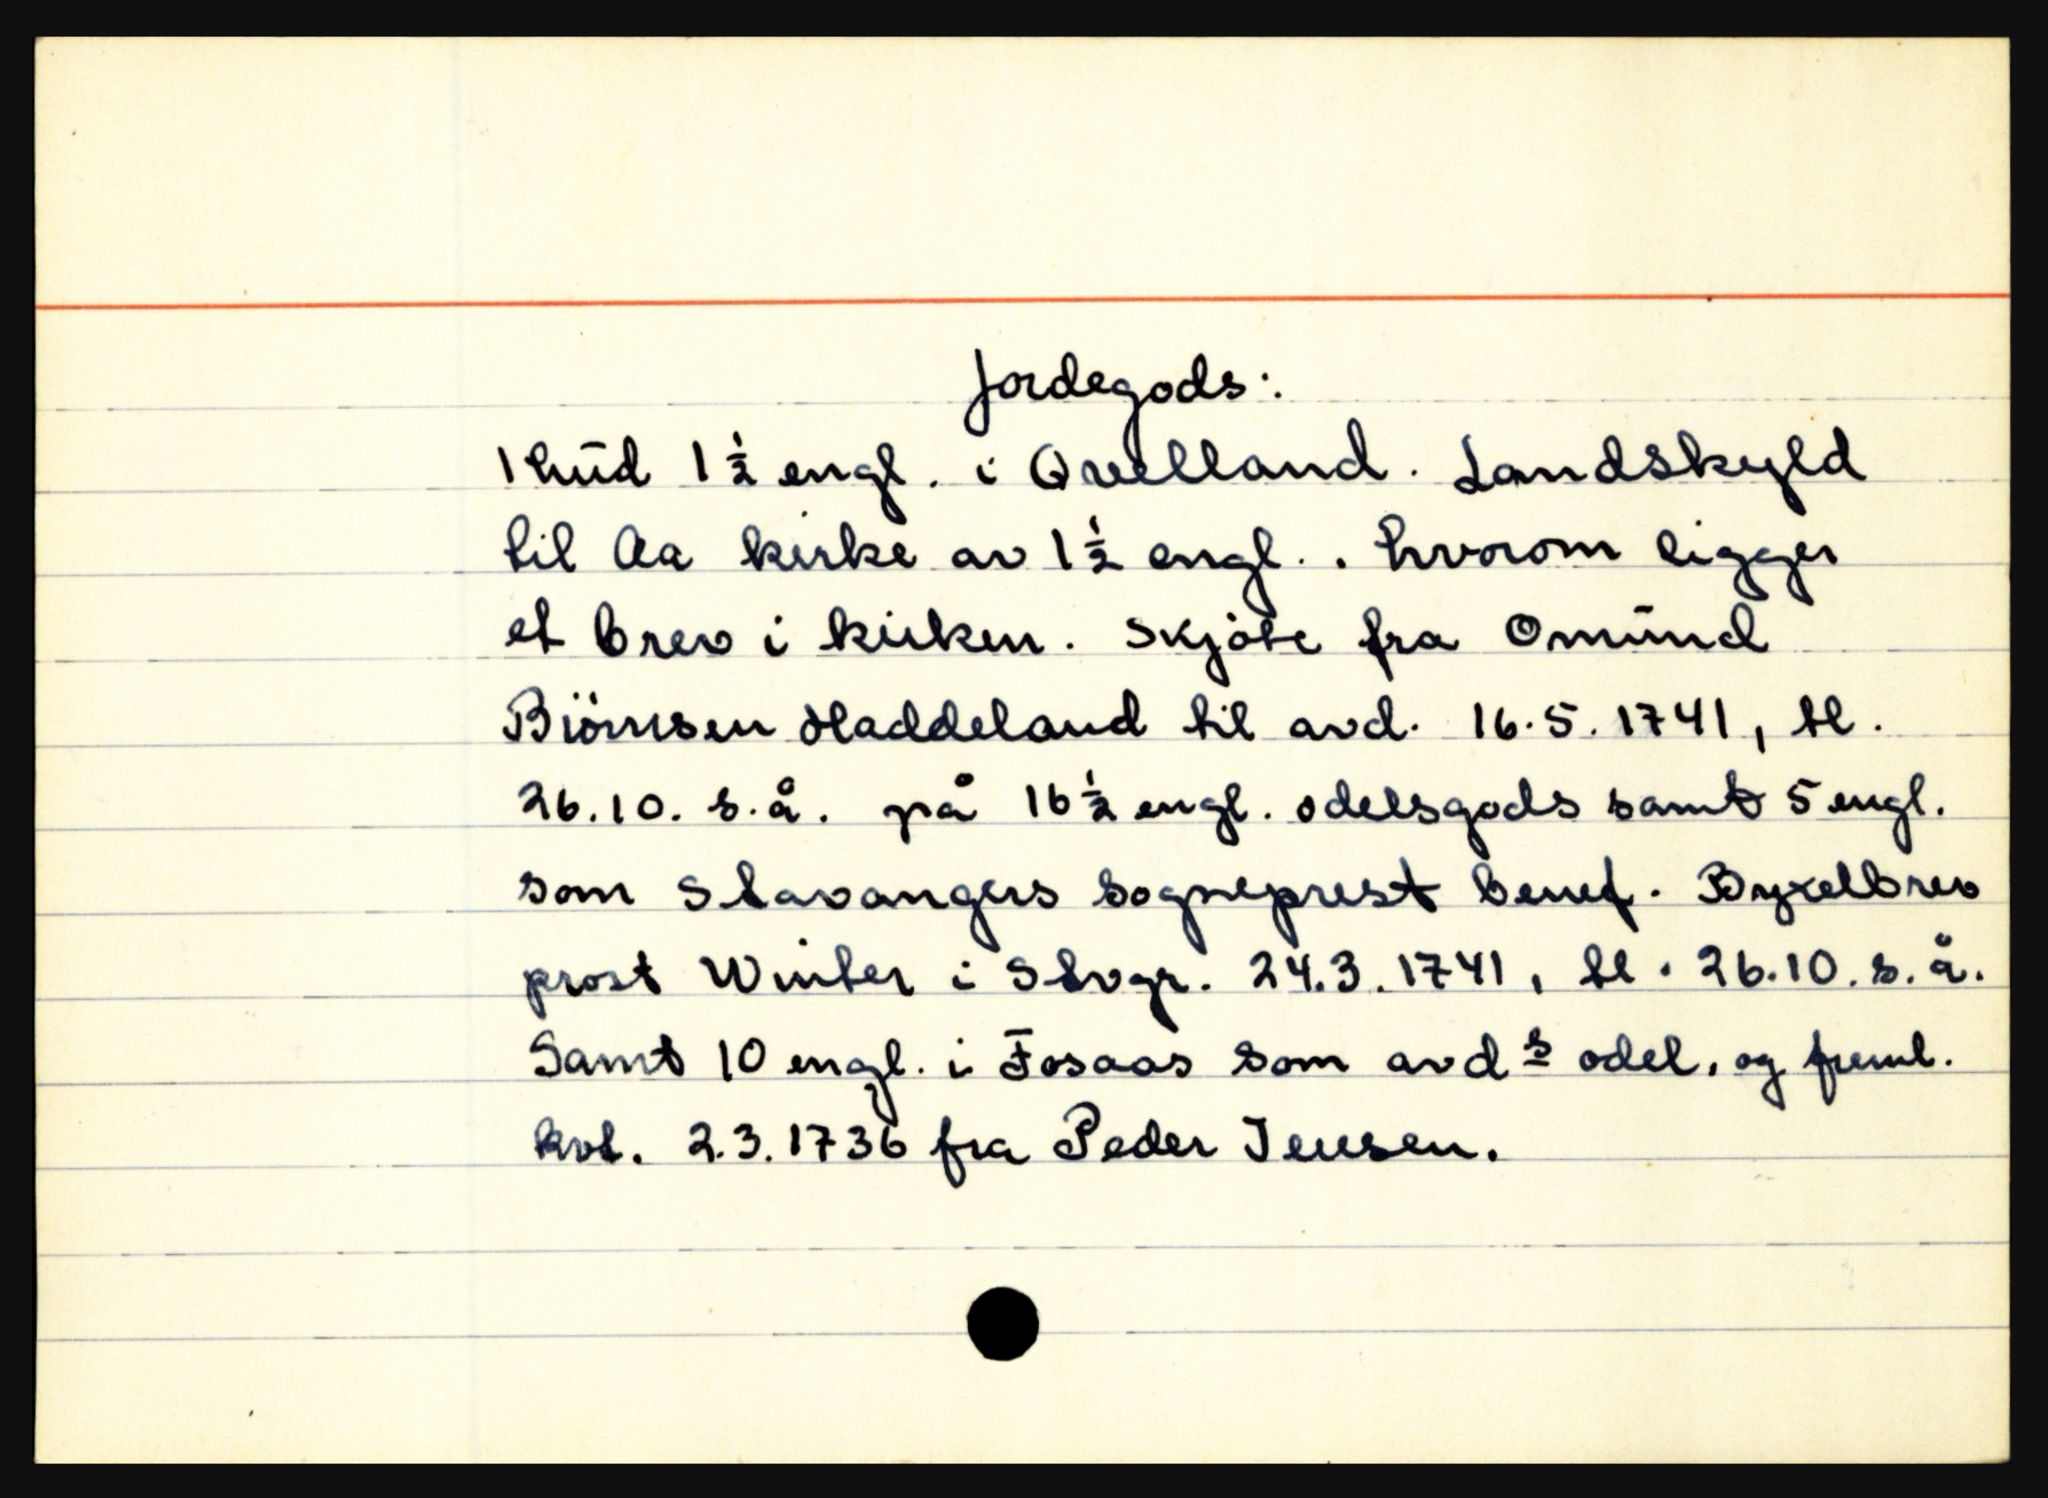 Jordegods:
1 hud 1½ engl. i Qvelland. Landskyld
til Aa kirke av 1½ engl.. hvorom ligger
et brev i kirken. Skjöte fra Omund
Biörnsen Haddeland til avd. 16.5.1741, tl.
26.10. s.å. på 16½ engl. odelsgods samt 5 engl.
som Stavangers sogneprest benef. Byxelbrev
prost Winter i Stvgr. 24.3.1741, tl. 26.10. s.å.
Samt 10 engl. i Fosaas som avds odel, og freml.
kvt. 2.3.1736 fra Peder Jensen.